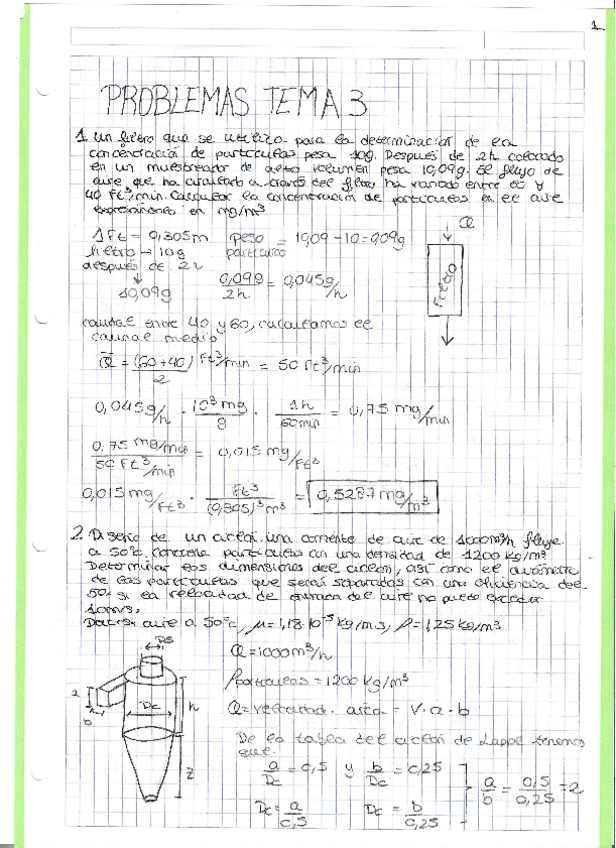 1
PROBLEMAS TEMA 3
1. Un filtro que se utiliza para la determinación de la
concentración de partículas pesa 10g. Después de 2h colocado
en un muestreador de alto volumen pesa 10,09g. El flujo de
aire que ha circulado a través del filtro ha variado entre 60 y
40 Ft³/min. Calcular la concentración de partículas en el aire
expresándolas en mg/m³
1Ft = 0,305m peso partículas = 10,09 - 10 = 0,09g
filtro → 10g
después de 2h
↓
10,09g
0,09g / 2h = 0,045 g/h
Q
Filtro
caudal entre 40 y 60, calculamos el
caudal medio
Q̄ = (60+40)/2 Ft³/min = 50 Ft³/min
0,045 g/h · 10³ mg/g · 1h/60min = 0,75 mg/min
0,75 mg/min / 50 Ft³/min = 0,015 mg/Ft³
0,015 mg/Ft³ · Ft³/(0,305)³ m³ = 0,5287 mg/m³
2. Diseño de un ciclón. una corriente de aire de 1000m³/h fluye
a 50ºC. contiene partículas con una densidad de 1200 kg/m³
Determinar las dimensiones del ciclón, así como el diámetro
de las partículas que serán separadas con una eficiencia del
50% si la velocidad de entrada del aire no puede exceder
10m/s.
Datos: aire a 50ºC, μ = 1,18·10⁻⁵ kg/m·s, ρ = 1,25 kg/m³
Ds
a
b
Dc
h
z
Q = 1000m³/h
ρpartículas = 1200 kg/m³
Q = velocidad · área = V · a · b
De la tabla del ciclón de Lapple tenemos
que:
a/Dc = 0,5 y b/Dc = 0,25
Dc = a/0,5 Dc = b/0,25
a/b = 0,5/0,25 = 2